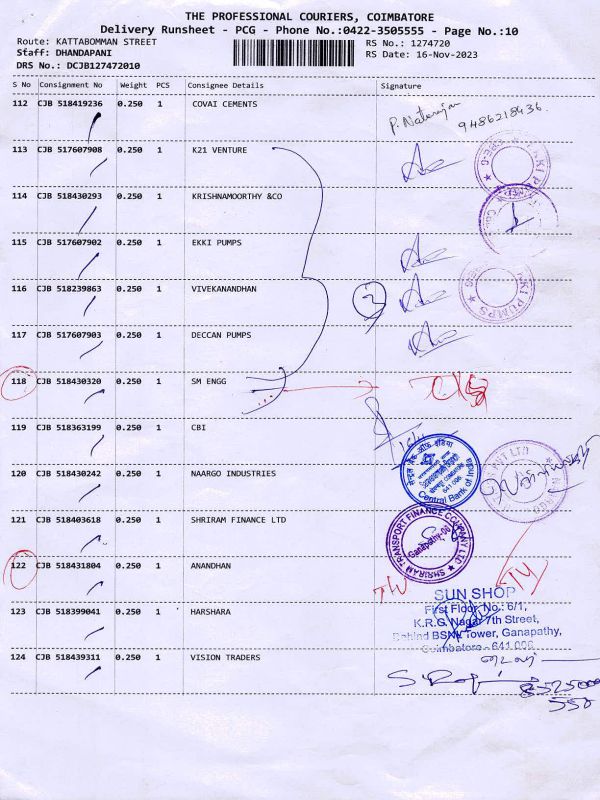 THE PROFESSIONAL COURIERS, COIMBATORE
Delivery Runsheet - PCG - Phone No.:0422-3505555 - Page No.:10
Route: KATTABOMMAN STREET
RS No.: 1274720
Staff: DHANDAPANI
RS Date: 16-Nov-2023
DRS No.: DCJB127472010
S No Consignment No Weight PCS Consignee Details Signature
112 CJB 518419236 0.250 1 COVAI CEMENTS
P. Natarajan 9486218436.
113 CJB 517607908 0.250 1 K21 VENTURE
114 CJB 518430293 0.250 1 KRISHNAMOORTHY &CO
115 CJB 517607902 0.250 1 EKKI PUMPS
116 CJB 518239863 0.250 1 VIVEKANANDHAN
EKKI PUMPS
117 CJB 517607903 0.250 1 DECCAN PUMPS
118 CJB 518430320 0.250 1 SM ENGG
119 CJB 518363199 0.250 1 CBI
सेन्ट्रल बैंक ऑफ इंडिया
641 006
Central Bank of India
120 CJB 518430242 0.250 1 NAARGO INDUSTRIES
121 CJB 518403618 0.250 1 SHRIRAM FINANCE LTD
SHRIRAM TRANSPORT FINANCE COMPANY LTD
Ganapathy-06
122 CJB 518431804 0.250 1 ANANDHAN
123 CJB 518399041 0.250 1 HARSHARA
SUN SHOP
First Floor, No.: 6/1,
K.R.G. Nagar 7th Street,
Behind BSNL Tower, Ganapathy,
Coimbatore - 641 006
124 CJB 518439311 0.250 1 VISION TRADERS